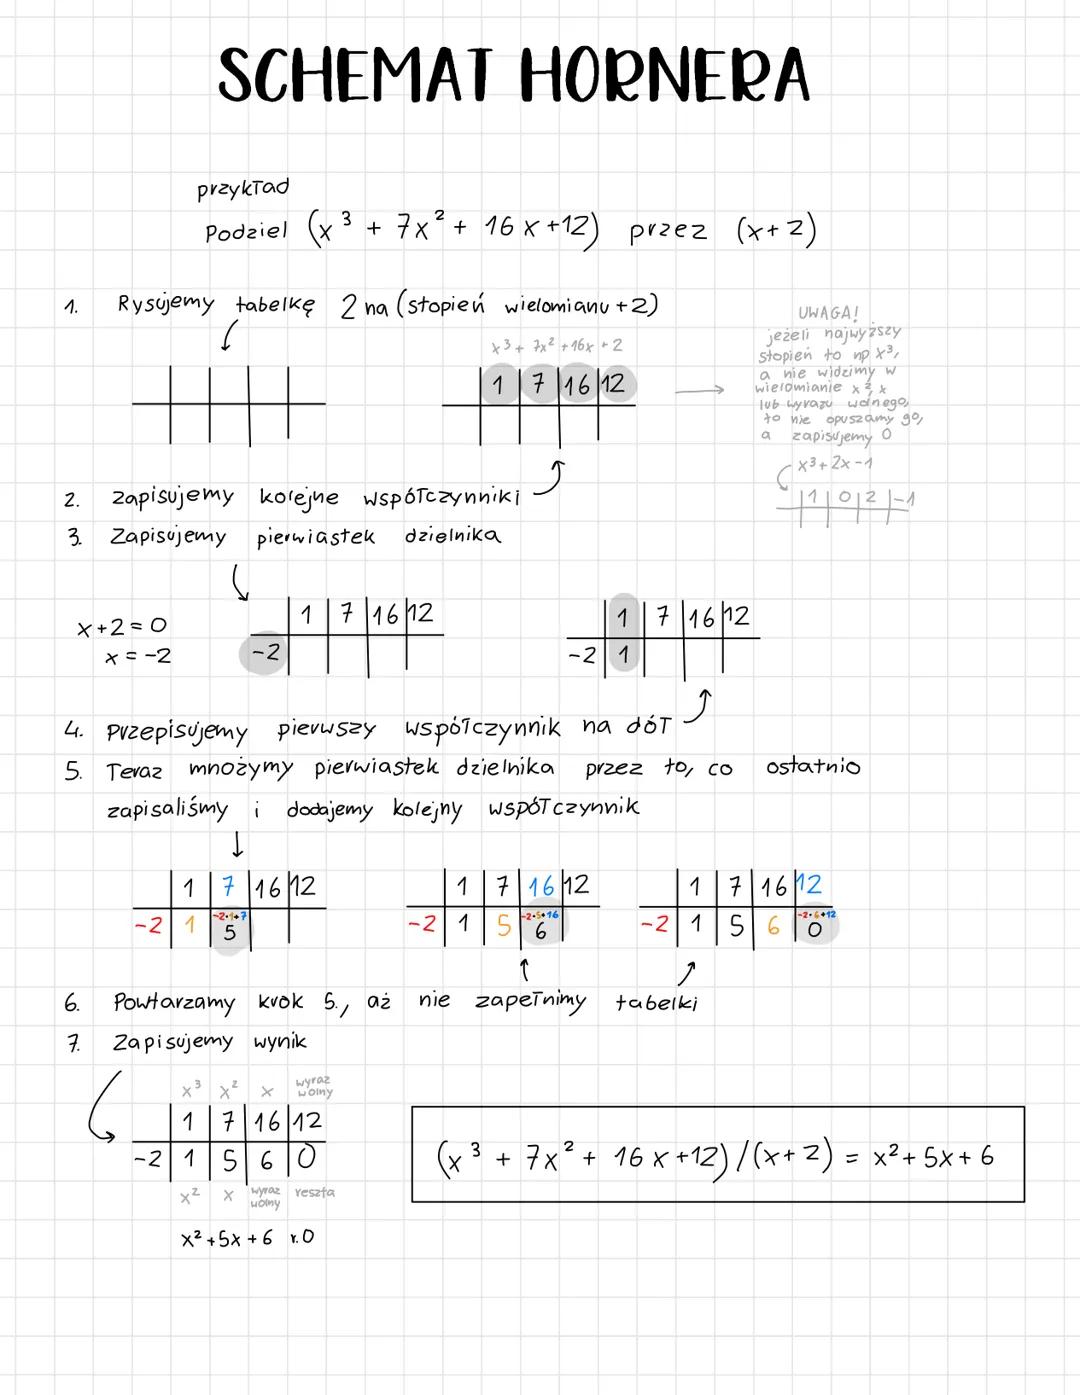 SCHEMAT HORNERA
przykład
Podziel (x³ + 7x² + 16x+12) przez (x+2)
1. Rysujemy tabelkę 2 na (stopień wielomianu +2)
x³ + 7x² + 16x + 2
1 7 16 12
UWAGA!
jeżeli najwyższy
stopień to np x³,
a nie widzimy w
wielomianie x², x
lub wyrazu wolnego,
to nie opuszamy go,
a zapisujemy 0
x³ + 2x - 1
1 0 2 -1
2. zapisujemy kolejne współczynniki
3. Zapisujemy pierwiastek dzielnika
x+2 = 0
x = -2
1 7 16 12
-2
1 7 16 12
-2 1
4. Przepisujemy pierwszy współczynnik na dół
5. Teraz mnożymy pierwiastek dzielnika przez to, co ostatnio
zapisaliśmy i dodajemy kolejny współczynnik
1 7 16 12
-2·1+7
-2 1 5
1 7 16 12
-2·5+16
-2 1 5 6
1 7 16 12
-2·6+12
-2 1 5 6 0
6. Powtarzamy krok 5., aż nie zapełnimy tabelki
7. Zapisujemy wynik
x³ x² x wyraz wolny
1 7 16 12
-2 1 5 6 0
x² x wyraz wolny reszta
x² + 5x + 6 r. 0
(x³ + 7x² + 16x +12) / (x+2) = x² + 5x + 6